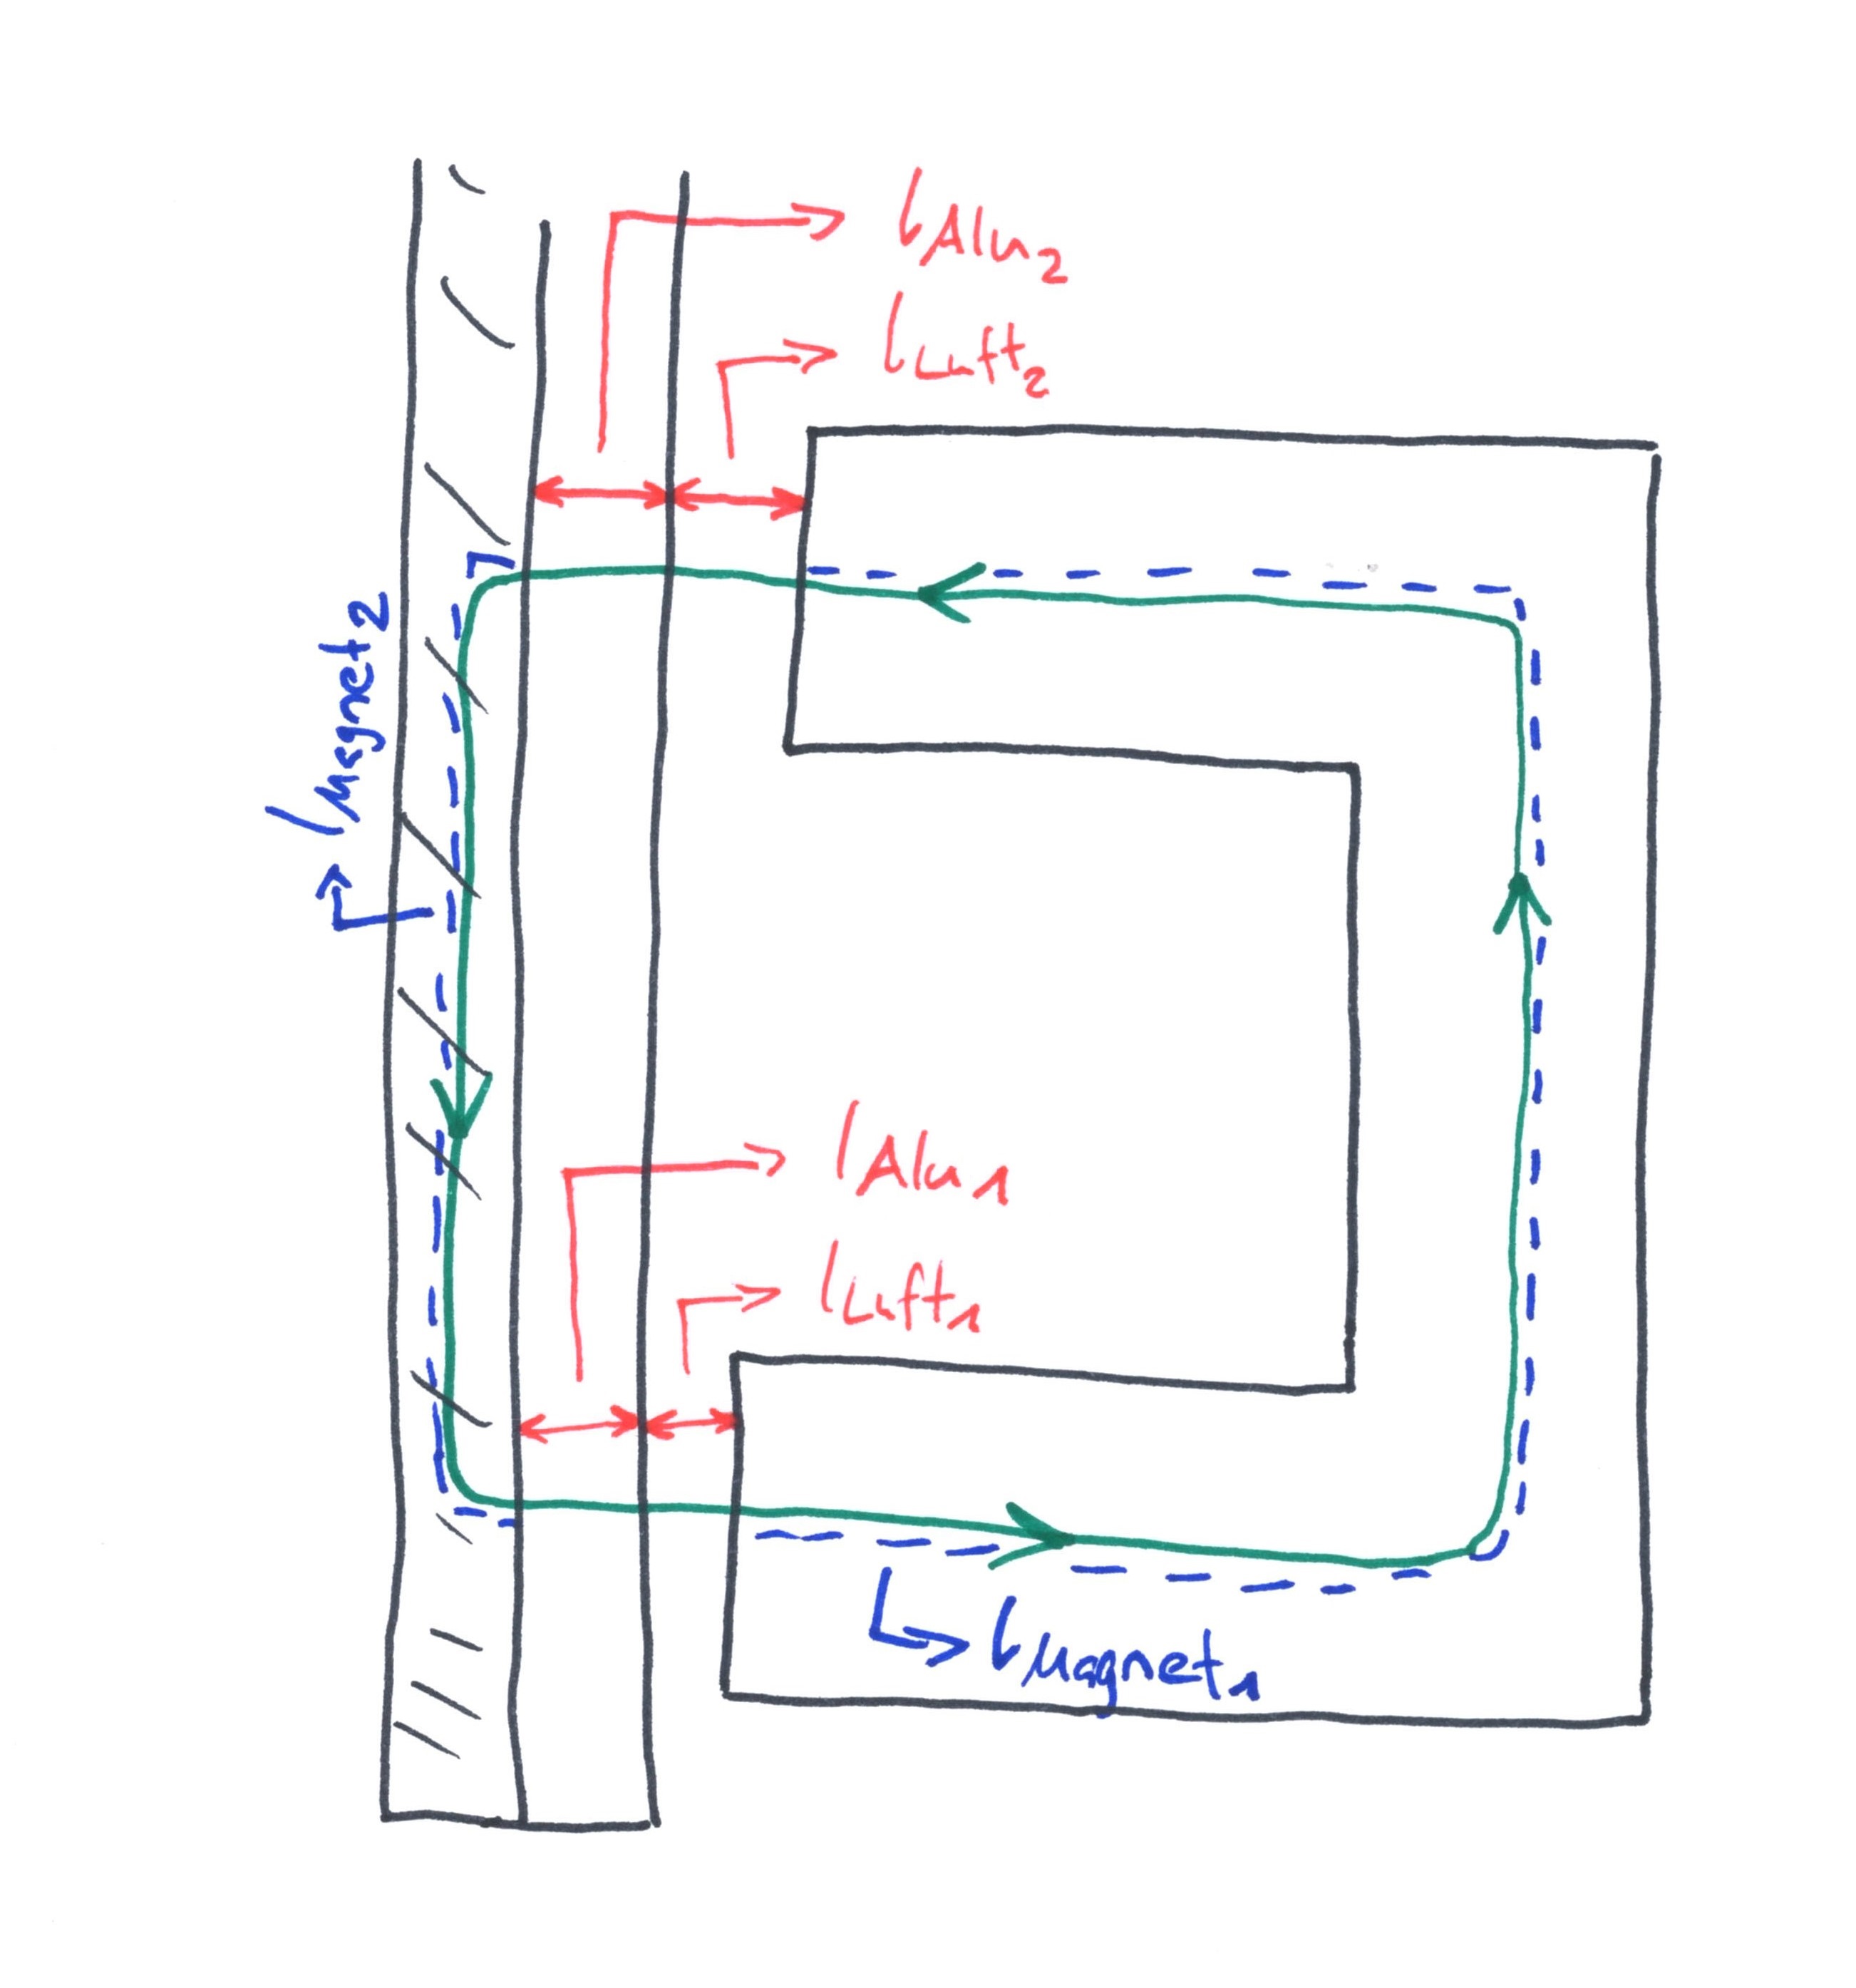 lAlu2
lLuft2
lMagnet2
lAlu1
lLuft1
lMagnet1